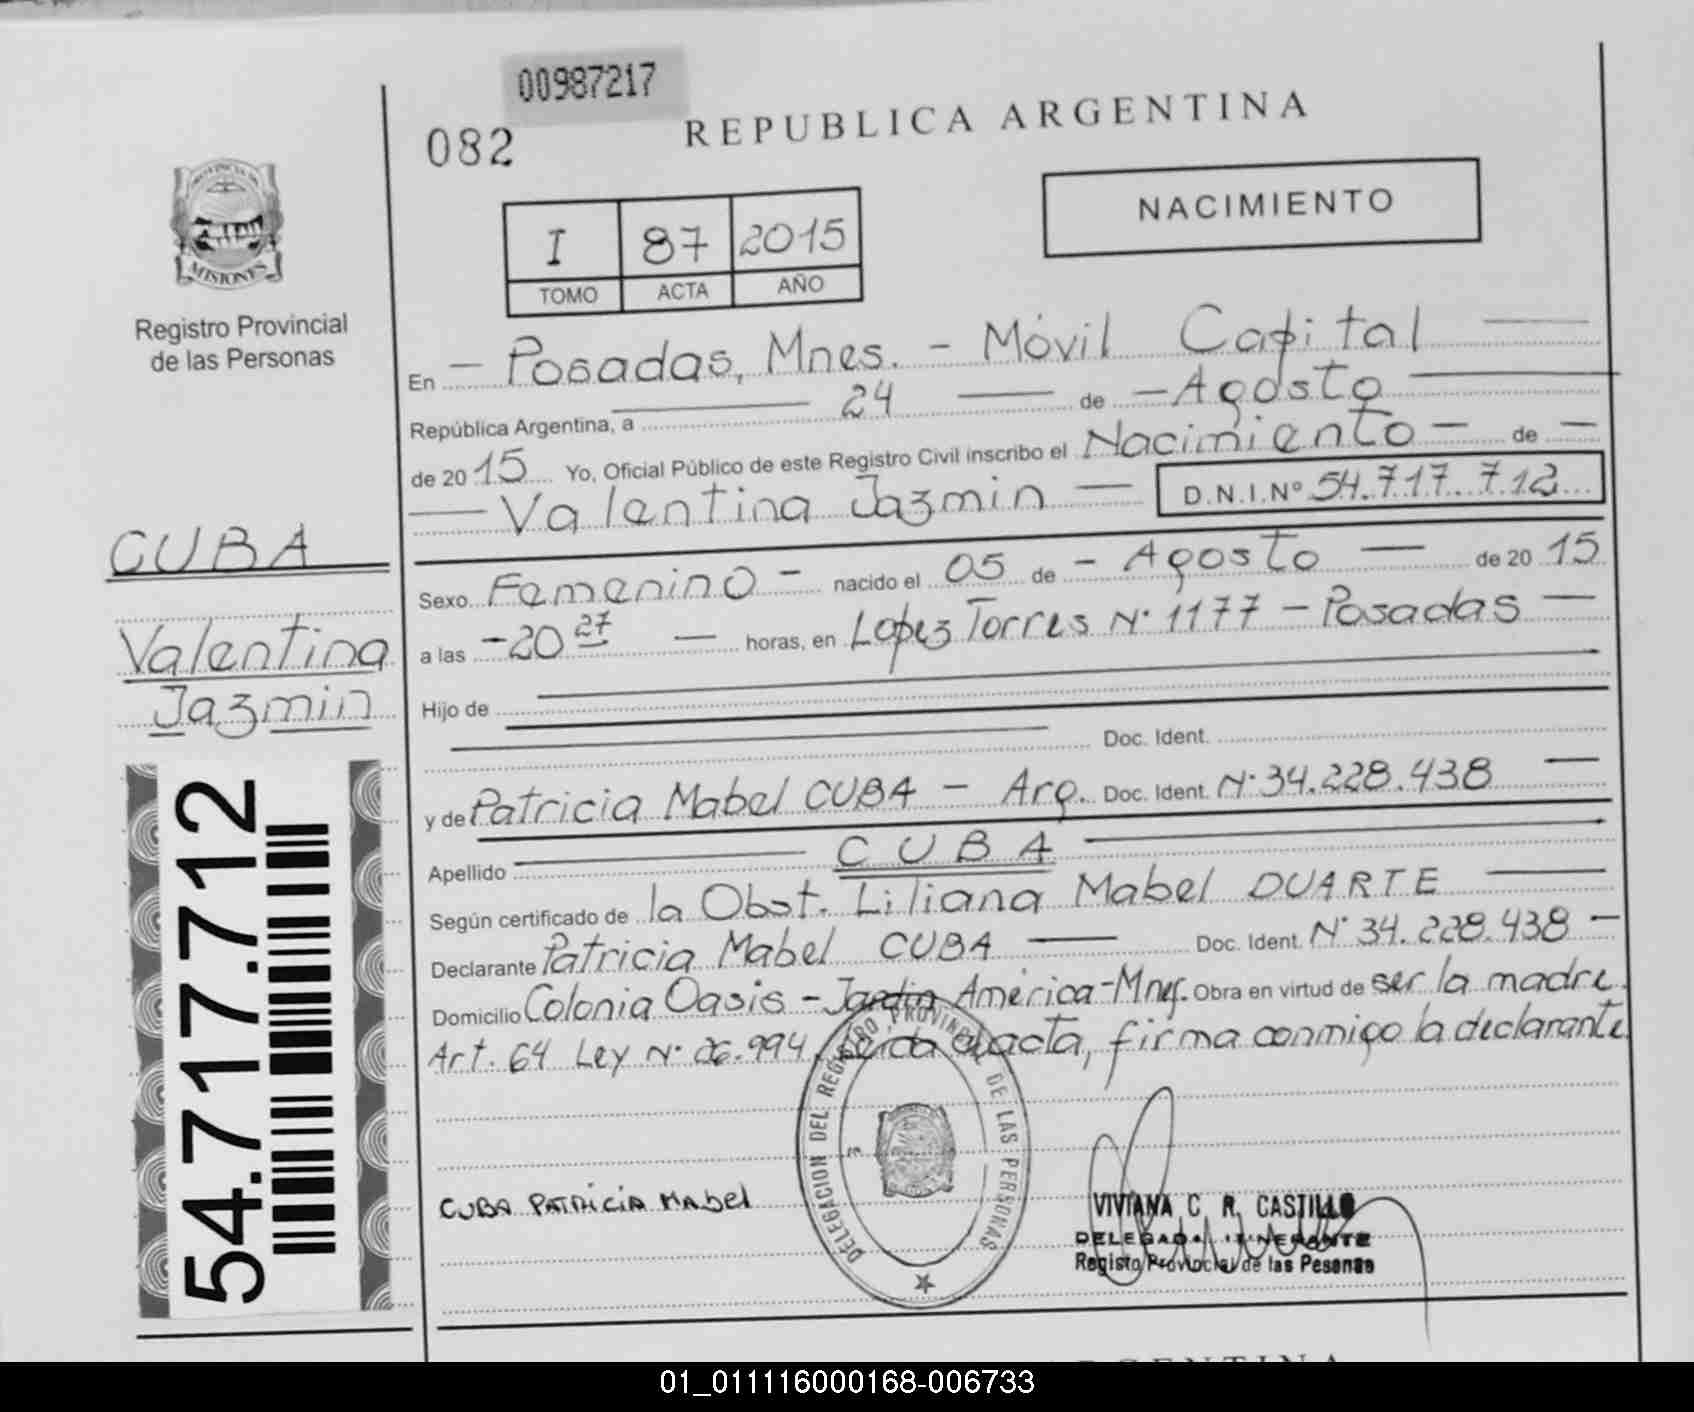 00987217
082
REPUBLICA ARGENTINA
PROVINCIA DE
MISIONES
Registro Provincial
de las Personas
I 87 2015
TOMO ACTA AÑO
NACIMIENTO
En - Posadas, Mnes. - Móvil Capital
República Argentina, a 24 de - Agosto
de 2015 Yo, Oficial Público de este Registro Civil inscribo el Nacimiento - de -
Valentina Jazmin - D.N.I.Nº 54.717.712
CUBA
Valentina
Jazmin
Sexo Femenino - nacido el 05 de - Agosto - de 2015
a las -20 27 - horas, en Lopez Torres Nº 1177 - Posadas -
Hijo de
Doc. Ident.
y de Patricia Mabel CUBA - Arg. Doc. Ident. Nº 34.228.438 -
Apellido CUBA
Según certificado de la Obst. Liliana Mabel DUARTE
Declarante Patricia Mabel CUBA - Doc. Ident. Nº 34.228.438 -
Domicilio Colonia Oasis - Jardín América-Mnes. Obra en virtud de ser la madre.
Art. 64 Ley Nº 26.994, leída el acta, firma conmigo la declarante.
54.717.712
DELEGACION DEL REGISTRO PROVINCIAL DE LAS PERSONAS
CUBA PATRICIA MABEL
VIVIANA C. R. CASTILLO
DELEGADA ITINERANTE
Registo Provincial de las Pesonas
ARGENTINA
01_011116000168-006733